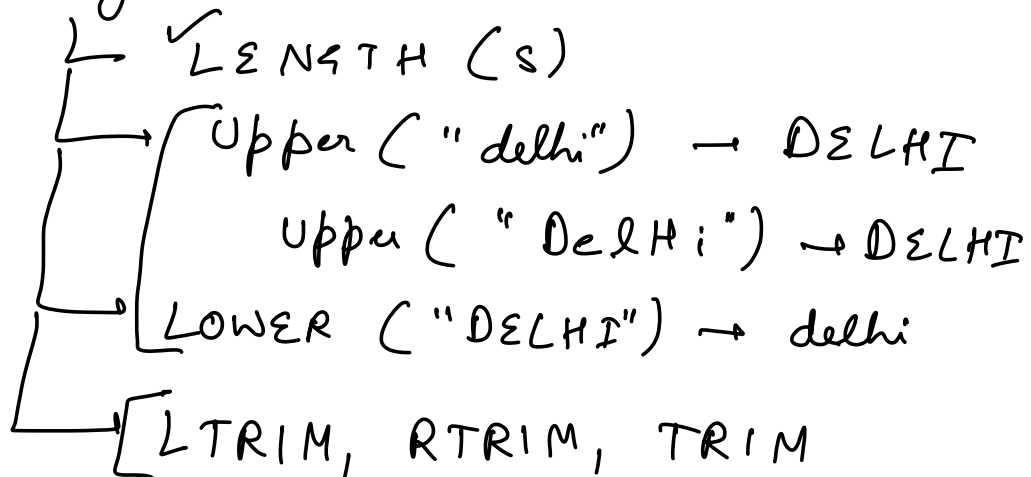 LENGTH (s)
Upper ("delhi") → DELHI
Upper ("DelHi") → DELHI
LOWER ("DELHI") → delhi
LTRIM, RTRIM, TRIM